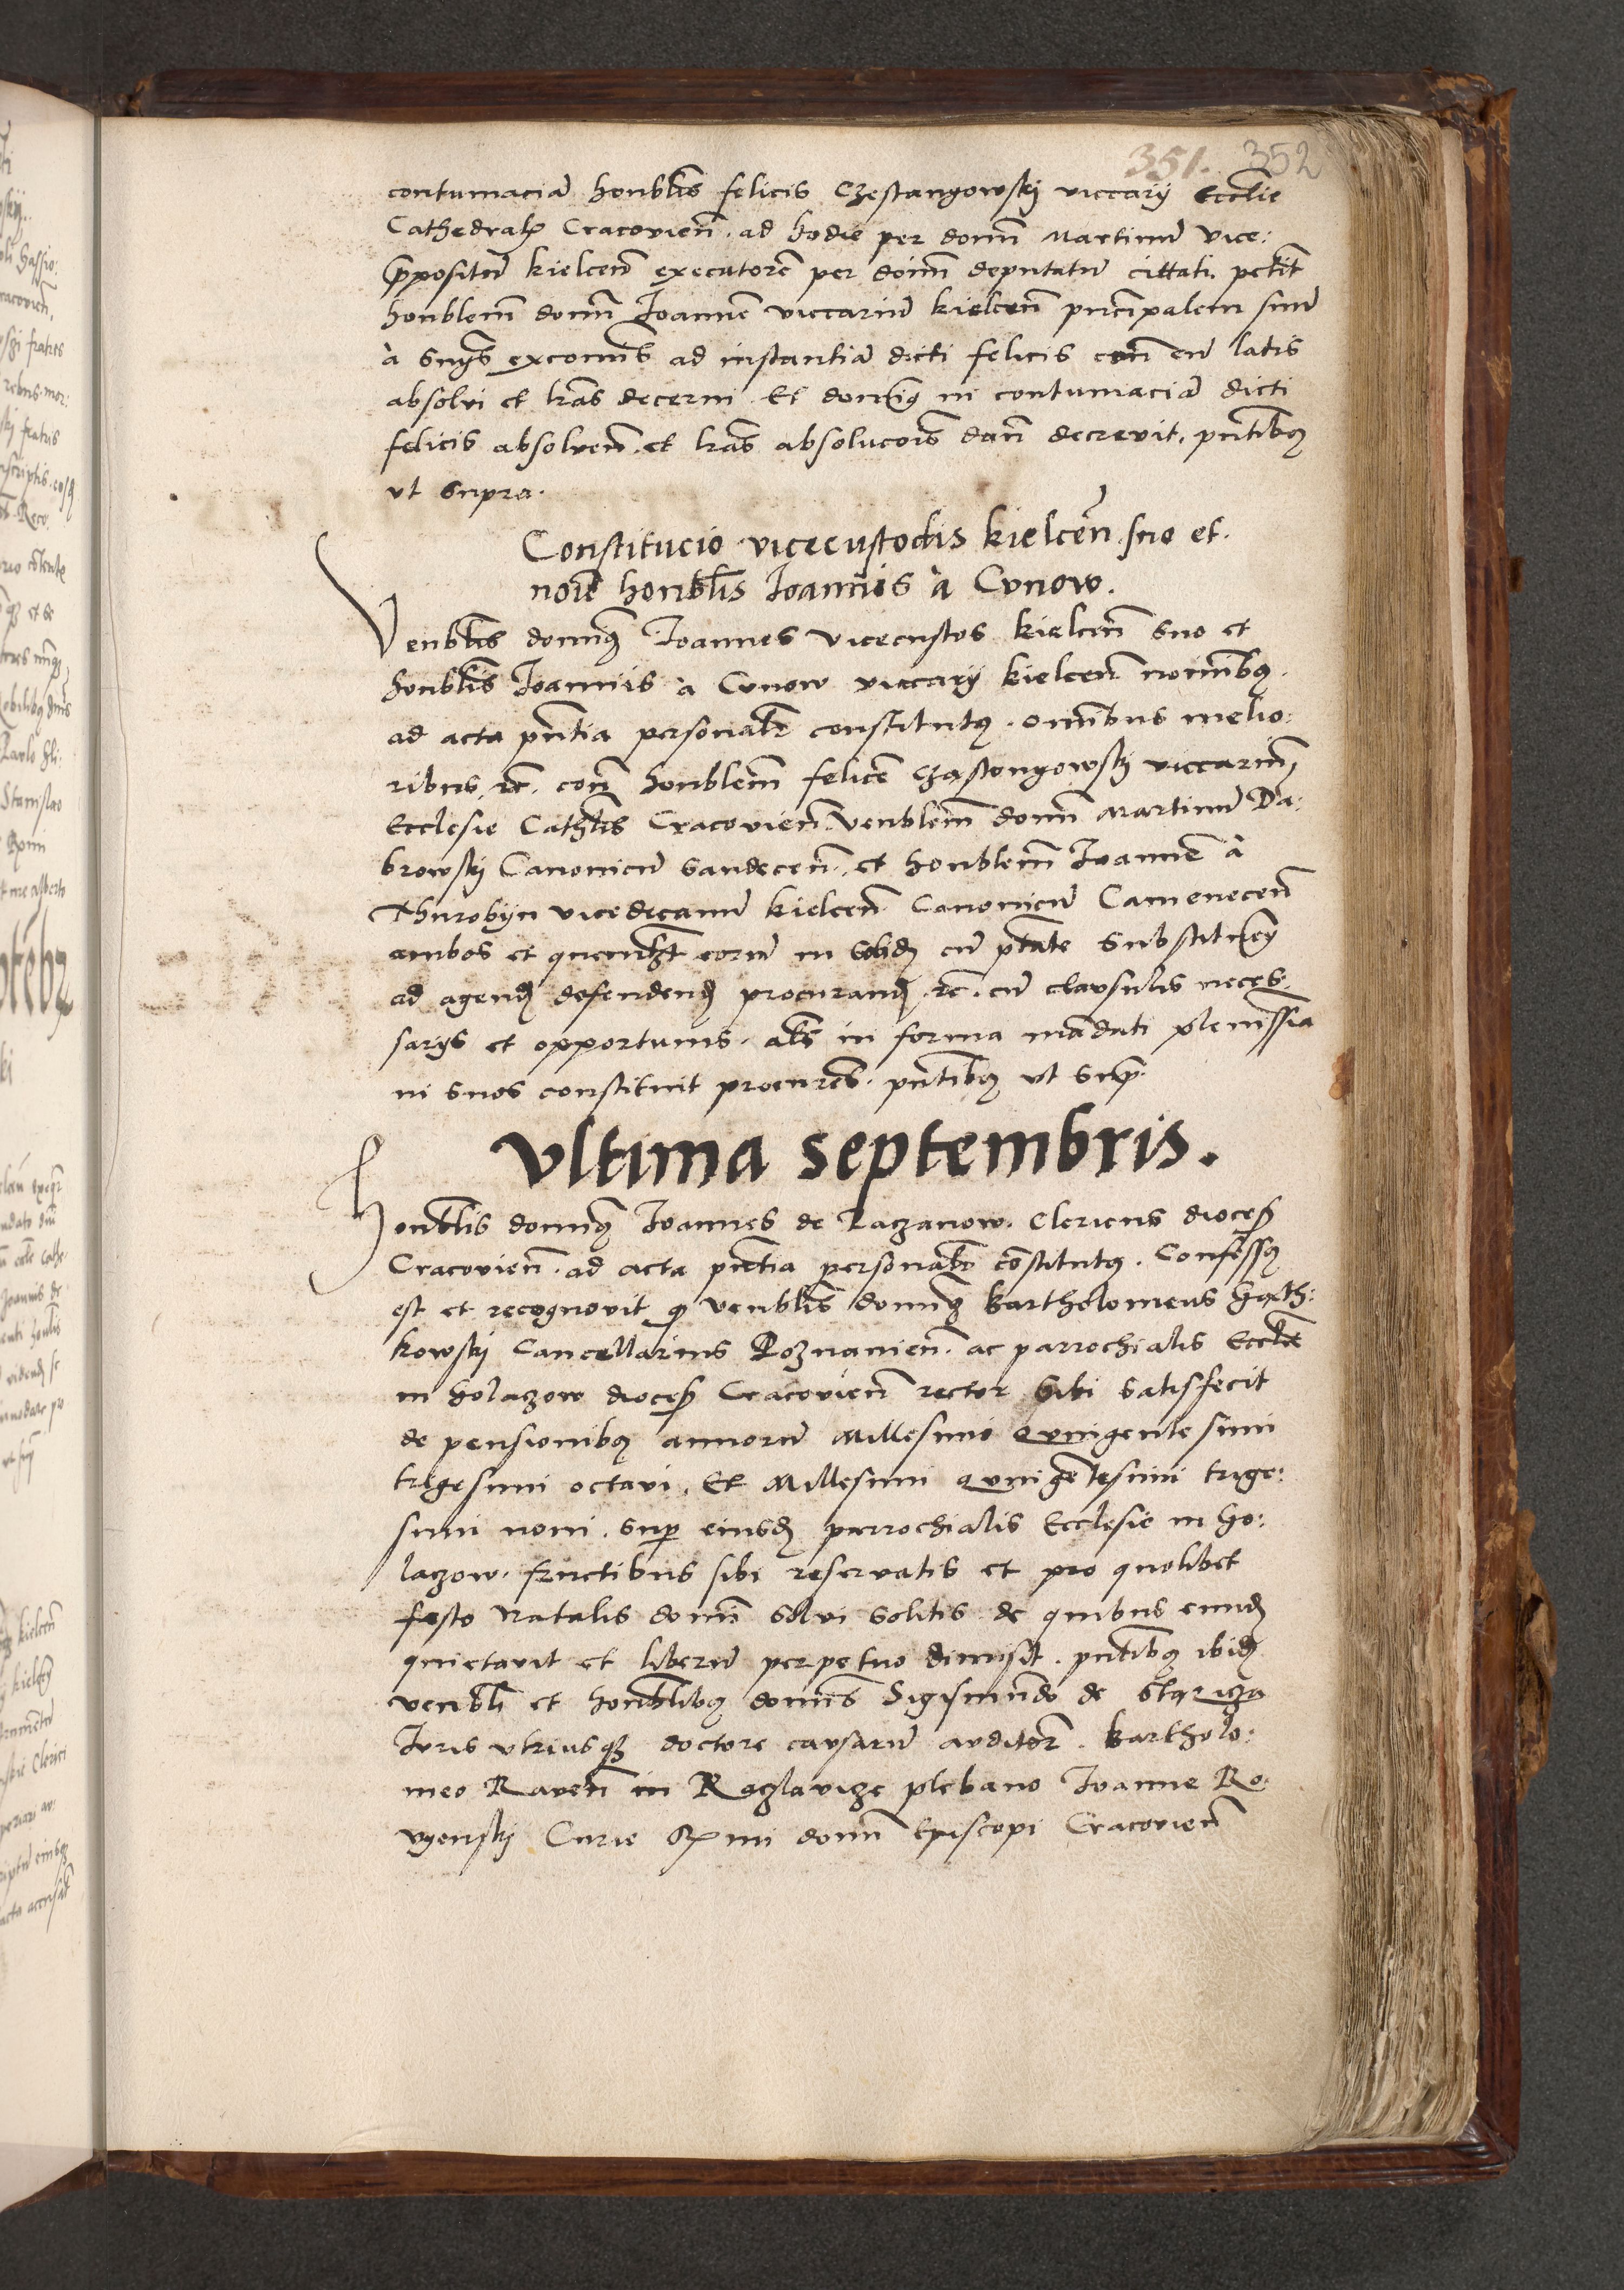 351. 352
contumaciã honblis felicis Czestangowskÿ viccarÿ Ecclie
Cathedralis Cracovien̄. ad hodie per domn̄ Martinũ vice:
p̱positũ kielcen̄ executorẽ per domn̄ deputatũ cittati. petit
honblem̄ domn̄ Joannẽ viccariũ kielcen̄ principalem suũ
à sn̄ys excom̄s ad instantiã dicti felicis con̄ eũ latis
absolvi et lr̃as decerni Et dominꝰ in contumaciã dicti
felicis absolven̄. et lr̃as absolucōis dan̄ decrevit. pn̄tibꝰ
vt supra.
Constitucio vicecustodis kielcen̄ suo et.
noiẽ honblis Joannis à Cunow.
Venblis dominꝰ Joannes vicecustos kielcen̄ suo et
honblis Joannis à Cunow viccarÿ kielcen̄ nominibꝰ.
ad acta pn̄tia personalr̄ constitutꝰ. omnibus melio:
ribus, etc̄. con̄ honblem̄ felicẽ Cząstongowskÿ viccariũ
Ecclesie Cathlis Cracovien̄. venblem̄ domn̄ Martinũ Da:
browskÿ Canonicũ Sandecen̄. et honblem̄ Joannẽ à
Thurobÿn vicedecanũ kielcen̄ Canonicũ Camenecen̄
ambos et quemlꝫt eorũ in solidꝫ cũ ptãte substituendi
ad agendꝫ defendendꝫ procurandꝫ. etc̄. cũ clausulis neces:
sarÿs et opportunis. als̄ in forma mãdati plenissia
in suos constituit procures. pn̄tibꝰ vt supᷓ.
Vltima septembris.
Honblis dominꝰ Joannes de Raczanow. Clericus dioces̄
Cracovien̄. ad acta pn̄tia personalr̄ cõstitutꝰ. Confessꝰ
est et recognovit qꝫ venblis dominꝰ Bartholomeus Gąth:
kowskÿ Cancellarius Poznanien̄. ac parrochialis Eccle
in Golaczow dioces̄ Cracovien̄ rector sibi satisfecit
de pensionibꝰ annorũ Millesimi Quingentesimi
trigesimi octavi. Et Millesimi quingẽtesimi trige:
simi noni. sup̱ eiusdꝫ parrochialis Ecclesie in Go:
laczow. fructibus sibi reservatis et pro quolibet
festo Natalis domn̄ solvi solitis de quibus eundꝫ
quietavit et liberũ perpetuo dimisit. pn̄tibꝰ ibidꝫ
venbli et honblibꝰ domĩs Sigismundo de Stązicza
Juris vtriusqꝫ doctore causarũ auditor̄. Bartholo:
meo Raven̄ in Raczlavicze plebano Joanne Ro:
vÿenskÿ Curie Rmi domn̄ Episcopi Cracovien̄